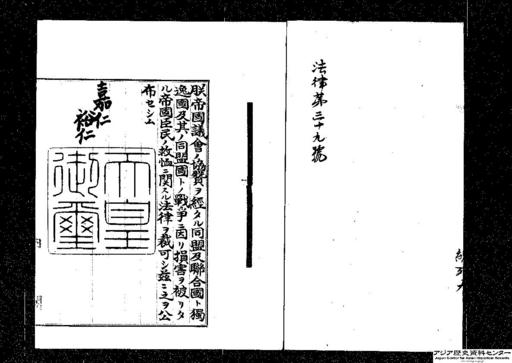 法律第三十九號
朕帝國議會ノ協賛ヲ經タル同盟及聯合國ト獨
逸國及其ノ同盟國トノ戰爭ニ因リ損害ヲ被リタ
ル帝國臣民ノ救恤ニ関スル法律ヲ裁可シ茲ニ之ヲ公
布セシム
嘉仁
裕仁
天皇
御璽
アジア歴史資料センター
Japan Center for Asian Historical Records